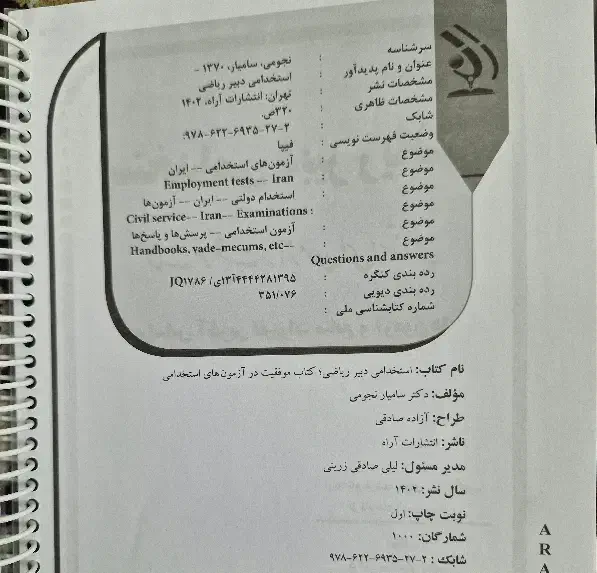 سرشناسه : نجومی، سامیار، ۱۳۷۰ -
عنوان و نام پدیدآور : استخدامی دبیر ریاضی
مشخصات نشر : تهران: انتشارات آراه، ۱۴۰۲
مشخصات ظاهری : ۳۲۰ص.
شابک : ۹۷۸-۶۲۲-۶۹۳۵-۲۷-۲:
وضعیت فهرست نویسی : فیپا
موضوع : آزمون‌های استخدامی -- ایران
موضوع : Employment tests -- Iran
موضوع : استخدام دولتی -- ایران -- آزمون‌ها
موضوع : Civil service-- Iran-- Examinations
موضوع : آزمون استخدامی -- پرسش‌ها و پاسخ‌ها
موضوع : Handbooks, vade-mecums, etc--
Questions and answers
رده بندی کنگره : JQ۱۷۸۶ /ی۱۳آ۴۴۴۴۲۸۱۳۹۵
رده بندی دیویی : ۳۵۱/۰۷۶
شماره کتابشناسی ملی :
نام کتاب: استخدامی دبیر ریاضی؛ کتاب موفقیت در آزمون‌های استخدامی
مؤلف: دکتر سامیار نجومی
طراح: آزاده صادقی
ناشر: انتشارات آراه
مدیر مسئول: لیلی صادقی زرینی
سال نشر: ۱۴۰۲
نوبت چاپ: اول
شمارگان: ۱۰۰۰
شابک : ۹۷۸-۶۲۲-۶۹۳۵-۲۷-۲
A
R
A